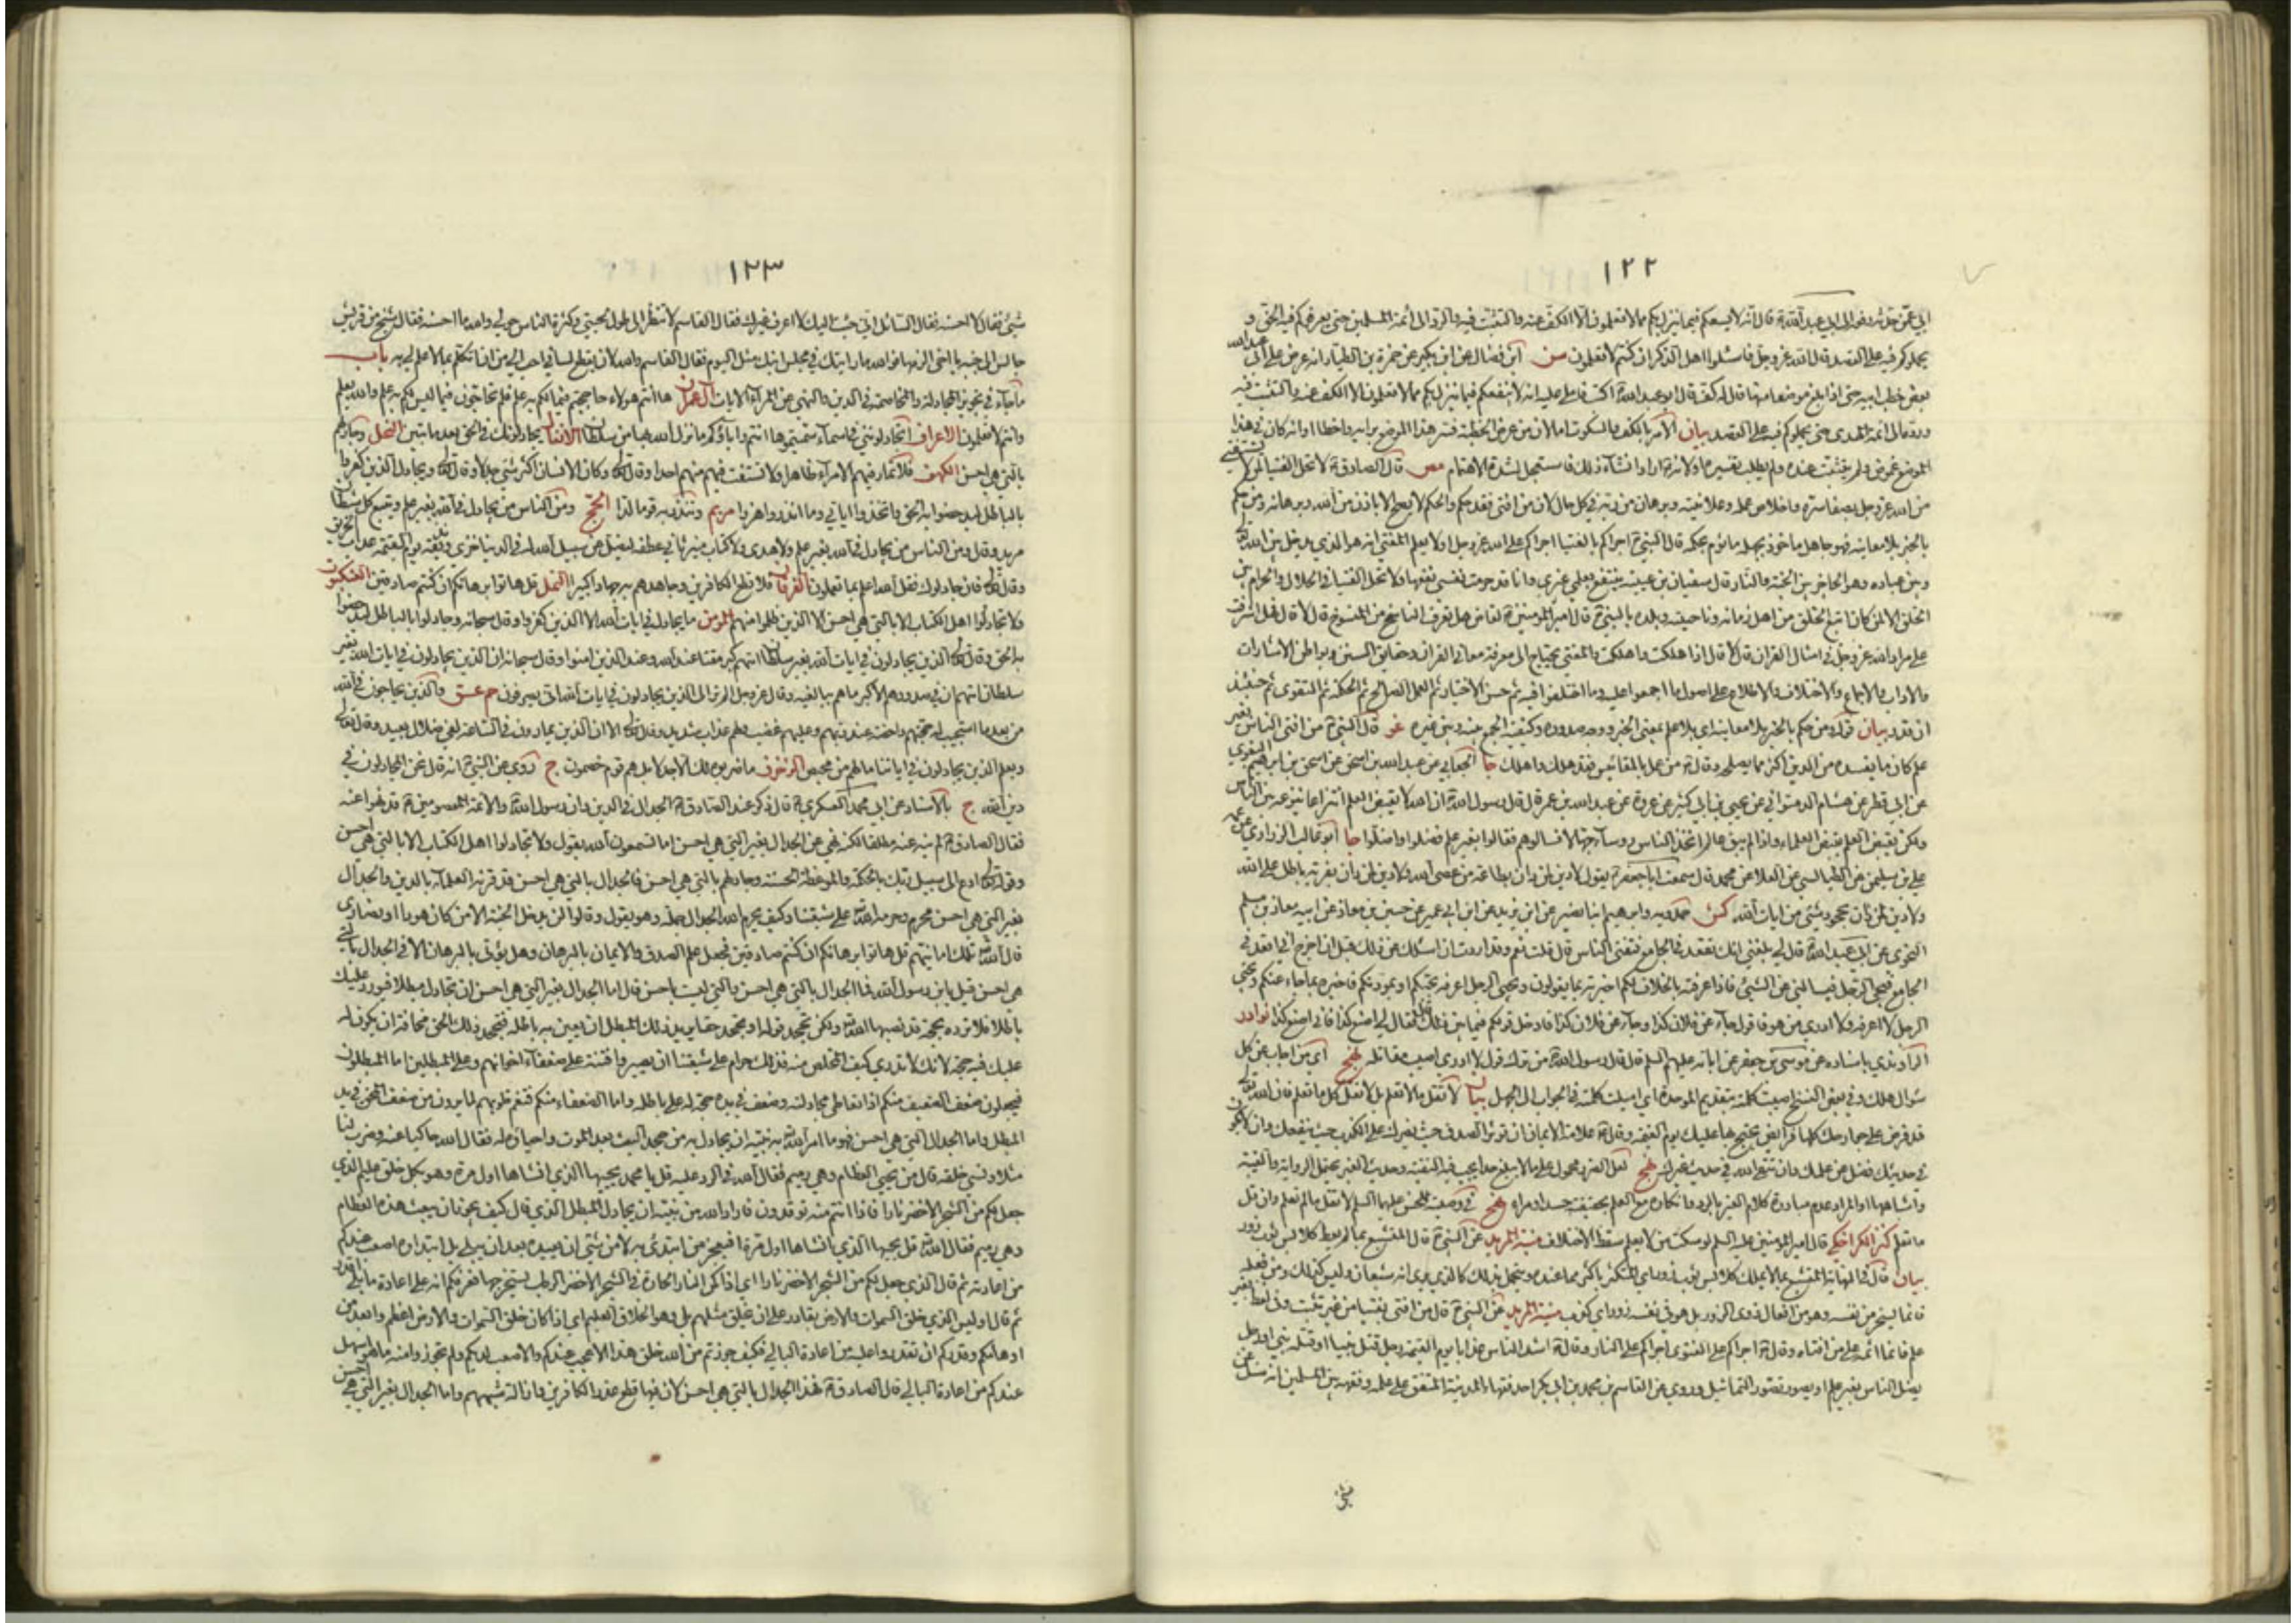 ١٢٢
ابي عمن حدثه رفعه الى ابي عبد الله قال انه لا يسعكم فيما ينزل بكم مما لا تعلمون الا الكف عنه والتثبت فيه والرد الى ائمة المسلمين حتى يعرفوكم فيه الحق و
يحملوكم فيه على القصد قال الله عز وجل فاسئلوا اهل الذكر ان كنتم لا تعلمون سن ابن فضال عن ابن بكير عن حمزة بن الطيار انه عرض على ابي عبد الله
بعض خطب ابيه حتى اذا بلغ موضعا منها قال له كف قال ابو عبد الله اكتب فاملى عليه انه لا ينفعكم فيما ينزل بكم مما لا تعلمون الا الكف عنه والتثبت فيه
ورده الى ائمة الهدى حتى يحملوكم فيه على القصد بيان الامر بالكف والسكوت اما لان من عرض الخطبة فسر هذا الموضع برايه واخطا او انه كان في هذا
الموضع غموض ولم يتثبت عنده ولم يطلب تفسيره او لانه اراد انشاء ذلك فاستعجل لشدة الاهتمام مص قال الصادق لا تحل الفتيا لمن لا يستفتي
من الله عز وجل بصفاء سره واخلاص عمله وعلانيته وبرهان من ربه في كل حال لان من افتى فقد حكم والحكم لا يصح الا باذن من الله وبرهانه ومن حكم
بالخبر بلا معاينة فهو جاهل ماخوذ بجهله ماثوم بحكمه قال النبي اجراكم بالفتيا اجراكم على الله عز وجل اولا يعلم المفتي انه هو الذي يدخل بين الله تعالى
وبين عباده وهو الحاجز بين الجنة والنار قال سفيان بن عيينة ينتفع بعلمي غيري وانا قد حرمت نفسي نفعها ولا تحل الفتيا في الحلال والحرام بين
الخلق الا لمن كان اتبع الخلق من اهل زمانه وناحيته وبلده بالنبي قال امير المؤمنين لقاض هل تعرف الناسخ من المنسوخ قال لا قال فهل اشرفت
على مراد الله عز وجل في امثال القران قال لا قال اذا هلكت واهلكت والمفتي يحتاج الى معرفة معاني القران وحقايق السنن وبواطن الاشارات
والاداب والاجماع والاختلاف والاطلاع على اصول ما اجمعوا عليه وما اختلفوا فيه ثم حسن الاختيار ثم العمل الصالح ثم الحكمة ثم التقوى ثم حينئذ
ان قدر بيان قوله ومن حكم بالخبر بلا معاينة اي بلا علم بمعنى الخبر ووجه صدوره وكيفية الجمع بينه وبين غيره غو قال النبي من افتى الناس بغير
علم كان ما يفسده من الدين اكثر مما يصلحه وقال من عمل بالمقائيس فقد هلك واهلك جا الجعابي عن عبد الله بن اسحق عن اسحق بن ابراهيم البغوي
عن ابي قطر عن هشام الدستواني عن يحيى بن ابي كثير عن عروة عن عبد الله بن عمر قال قال رسول الله ان الله لا يقبض العلم انتزاعا ينتزعه بين الناس
ولكن يقبض العلم بقبض العلماء واذا لم يبق عالم اتخذ الناس رؤساء جهالا فسالوهم فقالوا بغير علم فضلوا واضلوا جا ابو غالب الزراري عن عمه
علي بن سليمن عن الطيالسي عن العلا عن محمد قال سمعت ابا جعفر يقول لا دين لمن دان بطاعة من عصى الله ولا دين لمن دان بفرية باطل على الله
ولا دين لمن دان بجحود شئ من ايات الله كش حمدويه وابراهيم ابنا نصير عن ابن يزيد عن ابن ابي عمير عن حسين بن معاذ عن ابيه معاذ بن مسلم
النحوي عن ابي عبد الله قال لي بلغني انك تقعد في الجامع فتفتي الناس قال قلت نعم وقد اردت ان اسئلك عن ذلك قبل ان اخرج اني اقعد في
الجامع فيجئ الرجل فيسالني عن الشئ فاذا عرفته بالخلاف لكم اخبرته بما يقولون ويجئ الرجل اعرفه بحبكم او بمودتكم فاخبره بما جاء عنكم ويجئ
الرجل لا اعرفه ولا ادري من هو فاقول جاء عن فلان كذا وجاء عن فلان كذا فادخل قولكم فيما بين ذلك قال فقال لي اصنع كذا فاني اصنع كذا نوادر
الراوندي باسناده عن موسى بن جعفر عن ابائه عليهم السلم قال قال رسول الله من ترك قول لا ادري اصيبت مقاتله نهج اي من اجاب عن كل
سؤال هلك وفي بعض النسخ اصيبت كلمته بتقديم الموحدة اي اميلت كلمته في الجواب الى الجهل بيان لا تقل ما لا تعلم بل لا تقل كل ما تعلم فان الله تعالى
قد فرض على جوارحك كلها فرائض يحتج بها عليك يوم القيمة وقال علامة الايمان ان تؤثر الصدق حيث يضرك على الكذب حيث ينفعك وان لا يكون
في حديثك فضل عن علمك وان تتقي الله في حديث غيرك نهج لعل الضرر محمول على ما لا يبلغ حدا يجب فيه التقية وحديث الغير يحتمل الرواية والغيبة
واشباههما او المراد عدم مبادرة كلام الغير بالرد وانكاره مع العلم بحقيقته حسدا ومراء نهج في وصيته للحسن عليهما السلم لا تقل ما لم تعلم وان قل
ما تعلم كنز الكراجكي قال امير المؤمنين عليه السلم لو سكت من لا يعلم سقط الاختلاف منية المريد عن النبي قال المتشبع بما لم يعط كلابس ثوبي زور
بيان قال في النهاية المتشبع بما لا يملك كلابس ثوبي زور اي المتكثر باكثر مما عنده ويتجمل بذلك كالذي يرى انه شبعان وليس كذلك ومن فعله
فانما يسخر من نفسه وهو من افعال ذوي الزور بل هو في نفسه زور اي كذب منية المريد عن النبي قال من افتى بفتيا من غير تثبت وفي لفظ بغير
علم فانما اثمه على من افتاه وقال اجراكم على الفتوى اجراكم على النار وقال اشد الناس عذابا يوم القيمة رجل قتل نبيا او قتله نبي او رجل
يضل الناس بغير علم او مصور يصور التماثيل وروي عن القاسم بن محمد بن ابي بكر احد فقهاء المدينة المتفق على علمه وفقهه بين المسلمين انه سئل عن
١٢٣
شئ فقال لا احسنه فقال السائل اني جئت اليك لا اعرف غيرك فقال القاسم لا تنظر الى طول لحيتي وكثرة الناس حولي والله ما احسنه فقال شيخ من قريش
جالس الى جنبه يا ابن اخي الزمها فوالله ما رايتك في مجلس انبل منك مثل اليوم فقال القاسم والله لان يقطع لساني احب الي من ان اتكلم بما لا علم لي به باب
ما جاء في تجويز المجادلة والمخاصمة في الدين والنهي عن المراء الايات آل عمران ها انتم هؤلاء حاججتم فيما لكم به علم فلم تحاجون فيما ليس لكم به علم والله يعلم
وانتم لا تعلمون الاعراف اتجادلونني في اسماء سميتموها انتم واباؤكم ما نزل الله بها من سلطان الانفال يجادلونك في الحق بعد ما تبين النحل وجادلهم
بالتي هي احسن الكهف فلا تمار فيهم الا مراء ظاهرا ولا تستفت فيهم منهم احدا وقال تعالى وكان الانسان اكثر شئ جدلا وقال تعالى ويجادل الذين كفروا
بالباطل ليدحضوا به الحق واتخذوا اياتي وما انذروا هزوا مريم وتنذر به قوما لدا الحج ومن الناس من يجادل في الله بغير علم ويتبع كل شيطان
مريد وقال ومن الناس من يجادل في الله بغير علم ولا هدى ولا كتاب منير ثاني عطفه ليضل عن سبيل الله له في الدنيا خزي ونذيقه يوم القيمة عذاب الحريق
وقال تعالى فان جادلوك فقل الله اعلم بما تعملون الفرقان فلا تطع الكافرين وجاهدهم به جهادا كبيرا النمل قل هاتوا برهانكم ان كنتم صادقين العنكبوت
ولا تجادلوا اهل الكتاب الا بالتي هي احسن الا الذين ظلموا منهم المؤمن ما يجادل في ايات الله الا الذين كفروا وقال سبحانه وجادلوا بالباطل ليدحضوا
به الحق وقال تعالى الذين يجادلون في ايات الله بغير سلطان اتيهم كبر مقتا عند الله وعند الذين امنوا وقال سبحانه ان الذين يجادلون في ايات الله بغير
سلطان اتيهم ان في صدورهم الا كبر ما هم ببالغيه وقال عز وجل الم تر الى الذين يجادلون في ايات الله انى يصرفون حمعسق والذين يحاجون في الله
من بعد ما استجيب له حجتهم داحضة عند ربهم وعليهم غضب ولهم عذاب شديد وقال تعالى الا ان الذين يمارون في الساعة لفي ضلال بعيد وقال تعالى
ويعلم الذين يجادلون في اياتنا ما لهم من محيص الزخرف ما ضربوه لك الا جدلا بل هم قوم خصمون ج روي عن النبي انه قال نحن المجادلون في
دين الله ج بالاسناد عن ابي محمد العسكري قال ذكر عند الصادق الجدال في الدين وان رسول الله والائمة المعصومين قد نهوا عنه
فقال الصادق لم ينه عنه مطلقا لكنه نهي عن الجدال بغير التي هي احسن اما تسمعون الله يقول ولا تجادلوا اهل الكتاب الا بالتي هي احسن
وقوله تعالى ادع الى سبيل ربك بالحكمة والموعظة الحسنة وجادلهم بالتي هي احسن فالجدال بالتي هي احسن قد قرنه العلماء بالدين والجدال
بغير التي هي احسن محرم وحرمه الله على شيعتنا وكيف يحرم الله الجدال جملة وهو يقول وقالوا لن يدخل الجنة الا من كان هودا او نصارى
قال الله تلك امانيهم قل هاتوا برهانكم ان كنتم صادقين فجعل علم الصدق والايمان بالبرهان وهل يؤتى بالبرهان الا في الجدال بالتي
هي احسن قيل يابن رسول الله فما الجدال بالتي هي احسن والتي ليست باحسن قال اما الجدال بغير التي هي احسن ان تجادل مبطلا فيورد عليك
باطلا فلا ترده بحجة قد نصبها الله ولكن تجحد قوله او تجحد حقا يريد ذلك المبطل ان يعين به باطله فتجحد ذلك الحق مخافة ان يكون له
عليك فيه حجة لانك لا تدري كيف المخلص منه فذلك حرام على شيعتنا ان يصيروا فتنة على ضعفاء اخوانهم وعلى المبطلين اما المبطلون
فيجعلون ضعف الضعيف منكم اذا تعاطى مجادلته وضعف في يده حجة له على باطله واما الضعفاء منكم فتغم قلوبهم لما يرون من ضعف المحق في يد
المبطل واما الجدال التي هي احسن فهو ما امر الله به نبيه ان يجادل به من جحد البعث بعد الموت واحياءه له فقال الله حاكيا عنه وضرب لنا
مثلا ونسي خلقه قال من يحيي العظام وهي رميم فقال الله في الرد عليه قل يا محمد يحييها الذي انشاها اول مرة وهو بكل خلق عليم الذي
جعل لكم من الشجر الاخضر نارا فاذا انتم منه توقدون فاراد الله من نبيه ان يجادل المبطل الذي قال كيف يجوز ان يبعث هذه العظام
وهي رميم فقال الله قل يحييها الذي انشاها اول مرة افيعجز من ابتدئ به لا من شئ ان يعيده بعد ان يبلى بل ابتداؤه اصعب عندكم
من اعادته ثم قال الذي جعل لكم من الشجر الاخضر نارا اي اذا كمن النار الحارة في الشجر الاخضر الرطب يستخرجها فعرفكم انه على اعادة ما بلي اقدر
ثم قال اوليس الذي خلق السموات والارض بقادر على ان يخلق مثلهم بلى وهو الخلاق العليم اي اذا كان خلق السموات والارض اعظم وابعد من
اوهامكم وقدركم ان تقدروا عليه من اعادة البالي فكيف جوزتم من الله خلق هذا الاعجب عندكم والاصعب لديكم ولم تجوزوا منه ما هو اسهل
عندكم من اعادة البالي قال الصادق فهذا الجدال بالتي هي احسن لان فيها قطع عذر الكافرين وازالة شبههم واما الجدال بغير التي هي احسن